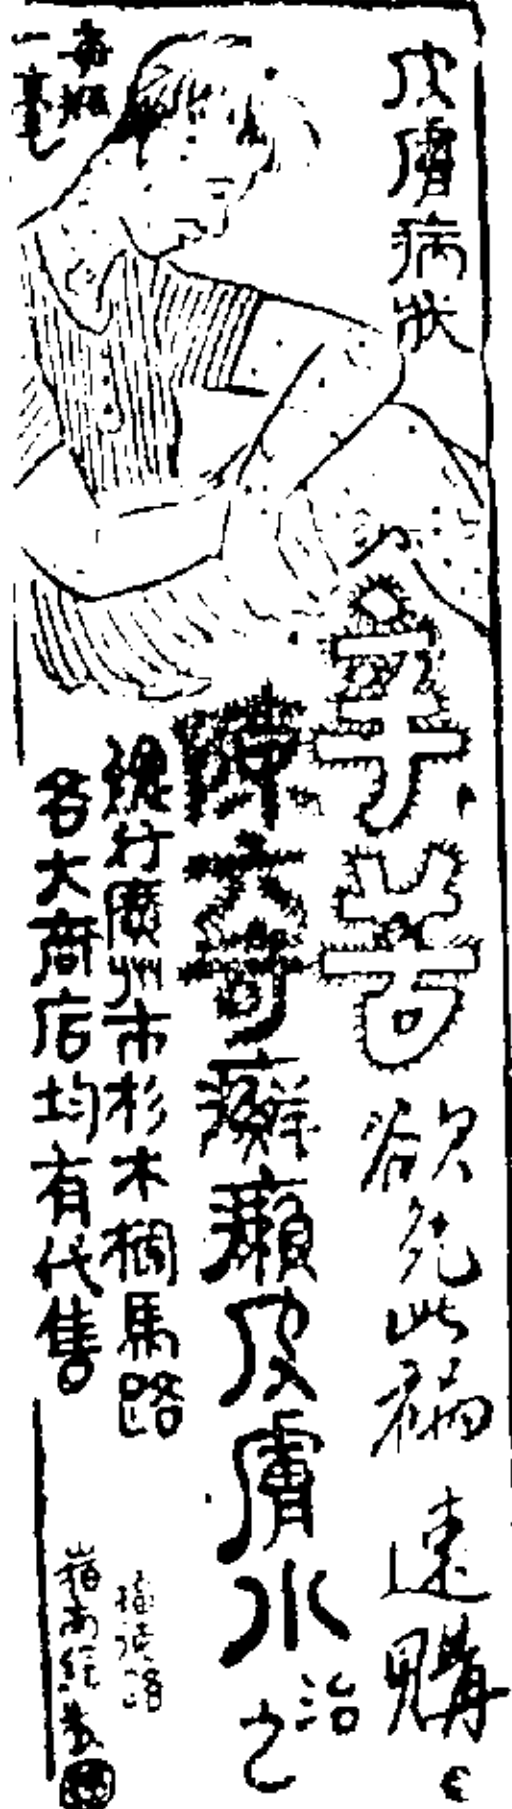 皮膚病狀
辛苦
欲免此禍 速購
陳六奇癬癩皮膚水治之
總行廣州市杉木欄馬路
各大商店均有代售
每瓶
一毫